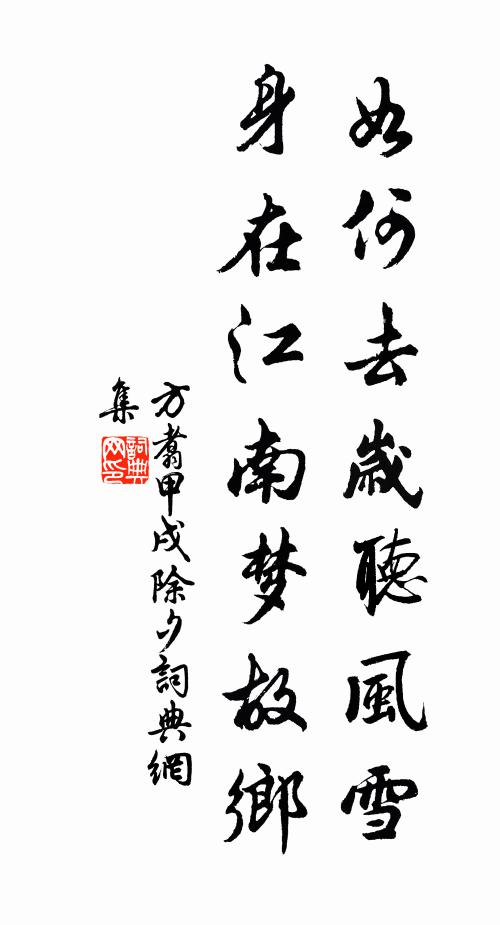 如何去歲聽風雪
身在江南梦故鄉
方翥甲戌除夕詞典網
集
詞典
网印